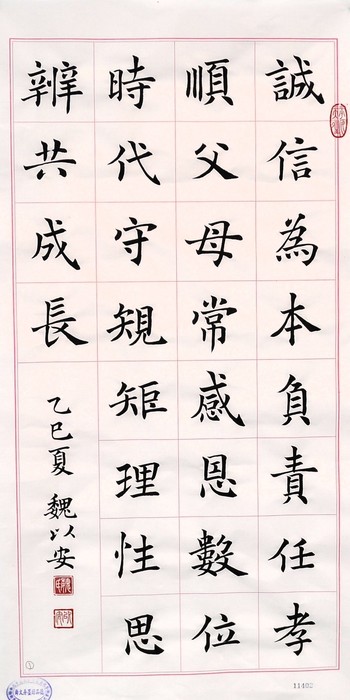 誠信為本負責任孝
順父母常感恩數位
時代守規矩理性思
辨共成長
乙巳夏 魏以安
11402